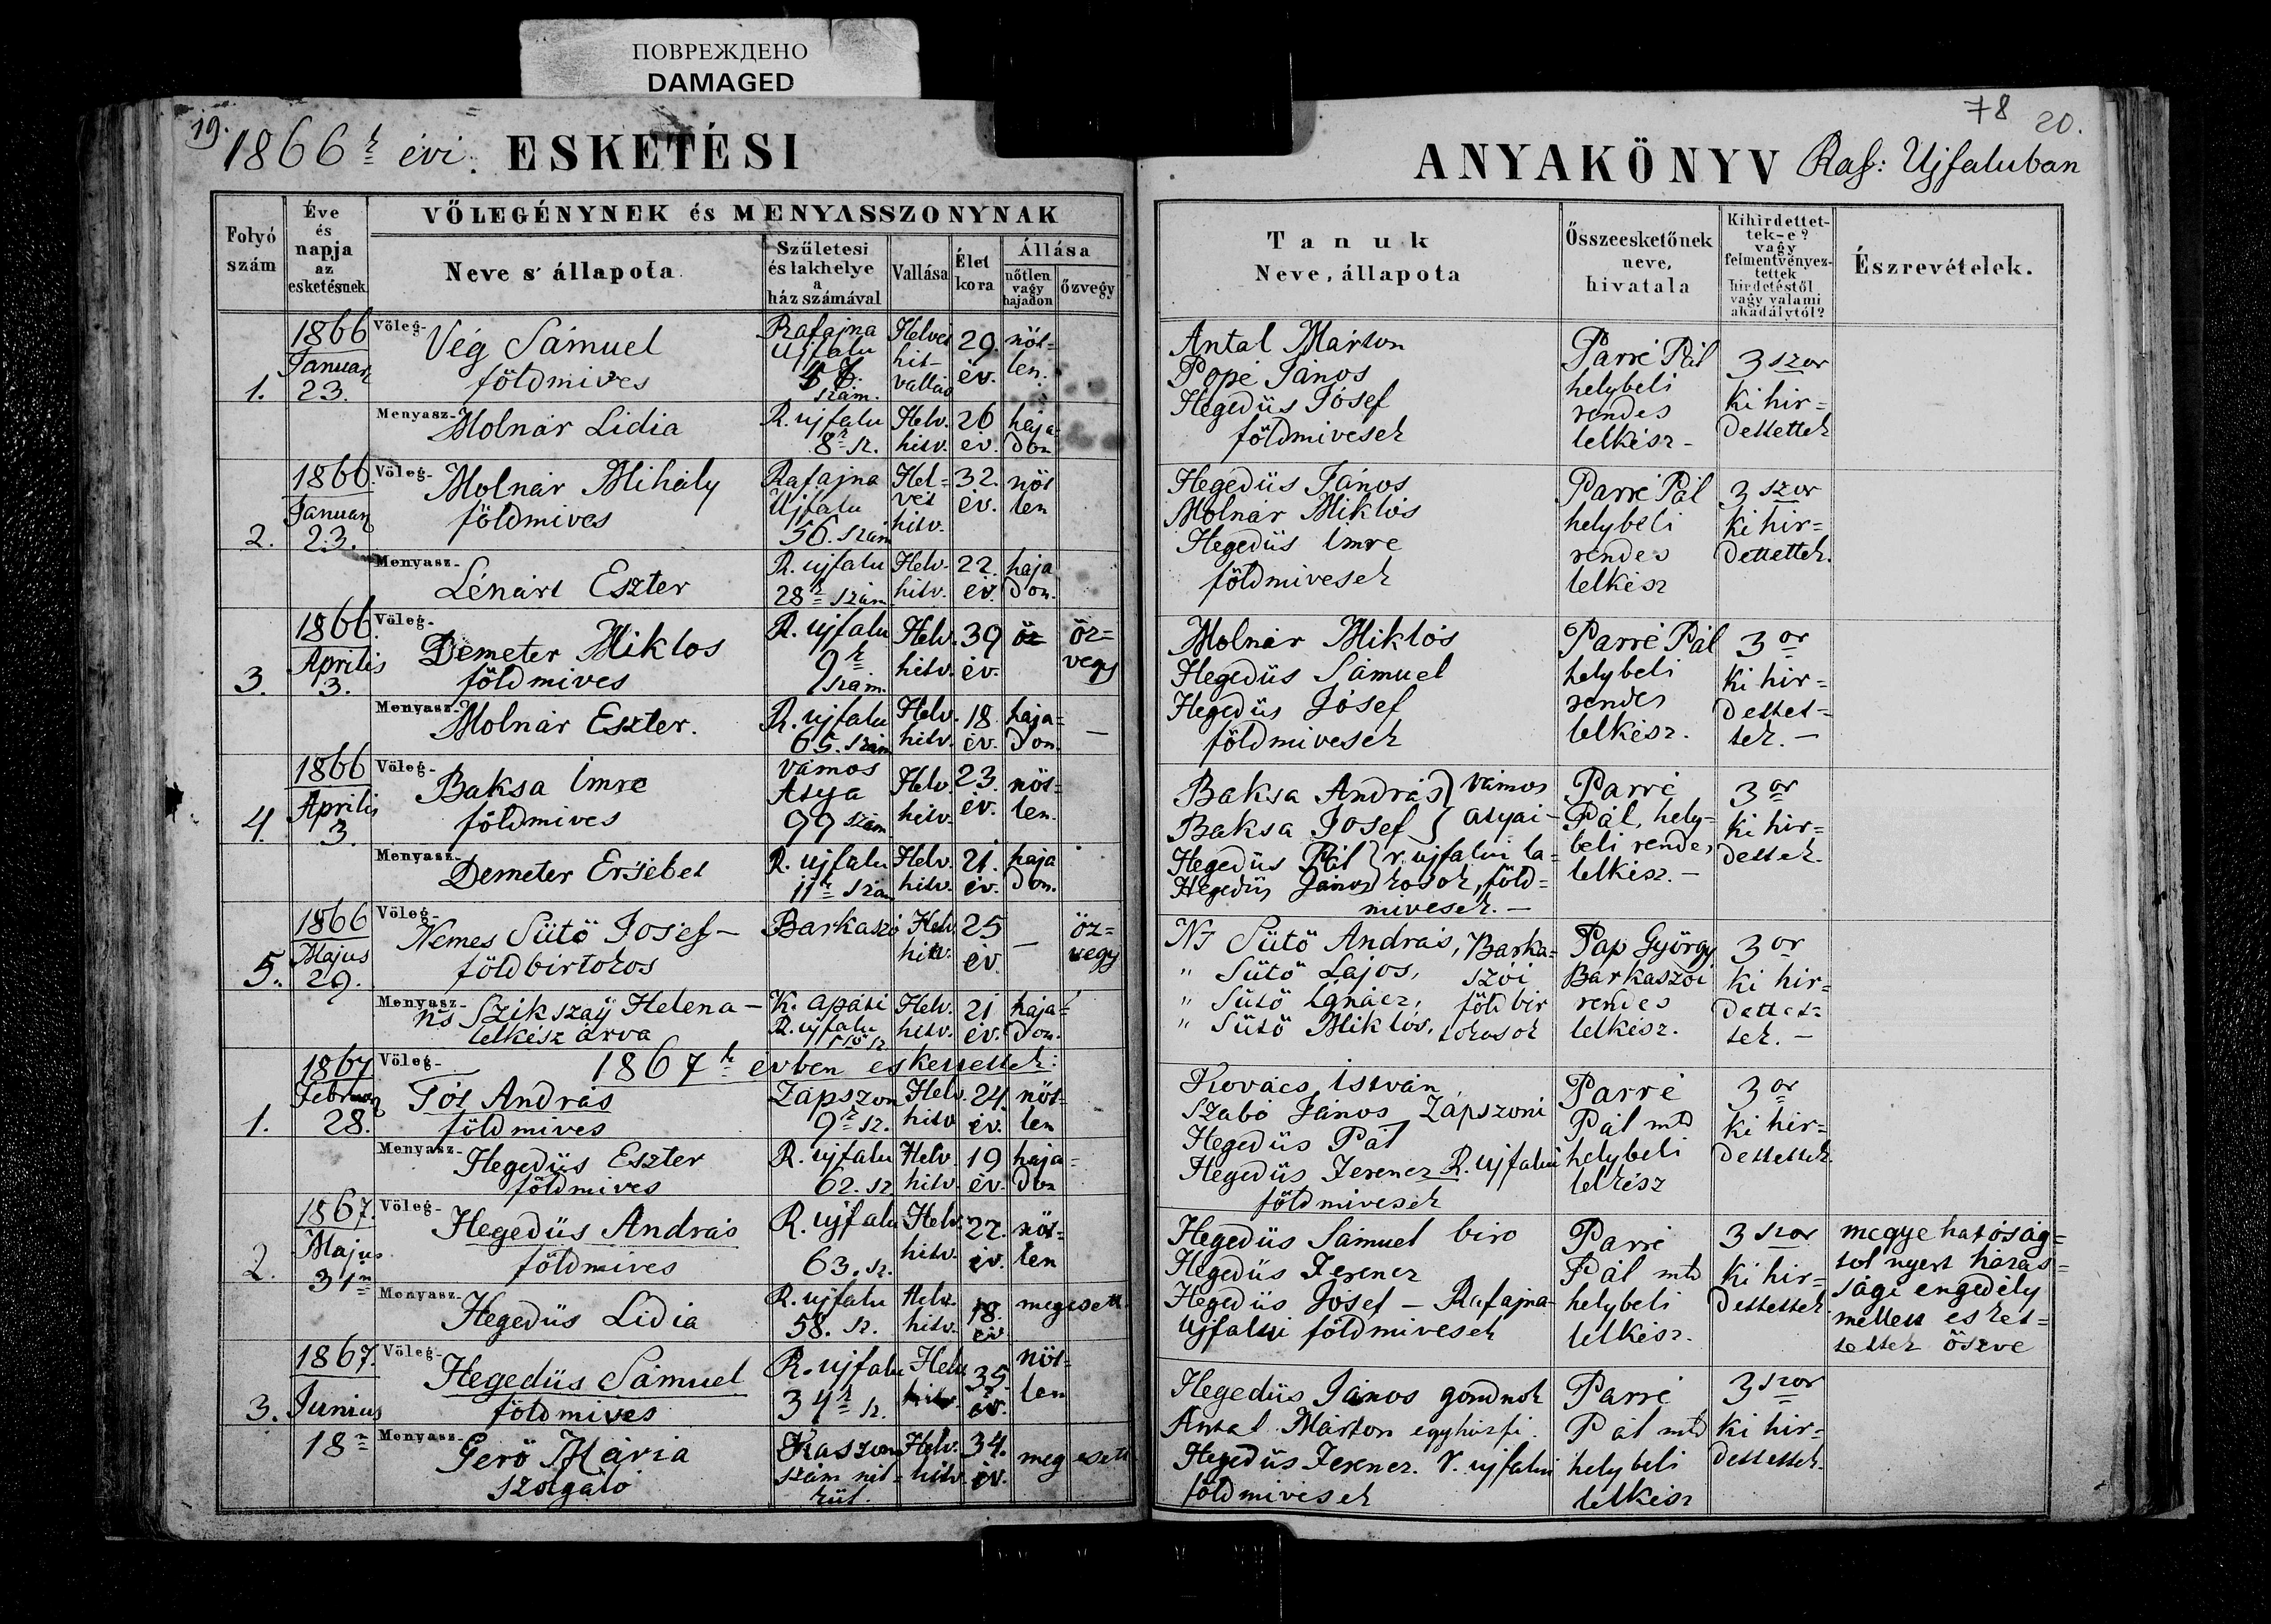 ПОВРЕЖДЕНО
DAMAGED
19.
1866 évi ESKETÉSI
ANYAKÖNYV Raf: Ujfaluban
78 20.
Folyó szám
Éve és napja az esketésnek
VŐLEGÉNYNEK és MENYASSZONYNAK
Neve s' állapota
Születesi és lakhelye a ház számával
Vallása
Élet kora
Állása
nőtlen vagy hajadon
özvegy
Tanuk
Neve, állapota
Összeesketőnek neve, hivatala
Kihirdettettek-e? vagy felmentvényeztettek hirdetéstől vagy valami akadálytól?
Észrevételek.
1.
1866
Januar
23.
Vőleg-
Vég Sámuel
földmives
Rafajna
Ujfalu
szám.
Helvet
hit
vallás
29.
év.
nöt-
len.
Menyasz-
Molnár Lidia
R. ujfalu
8 sz.
Helv.
hitv.
26
év.
haja-
don
Antal Márton
Pope János
Hegedüs Jósef
földmivesek
Parré Pál
helybeli
rendes
lelkész-
3 szor
ki hir=
dettettek
2.
1866
Januar
23.
Vőleg-
Molnár Mihály
földmives
Rafajna
Ujfalu
56. szám
Hel=
vét
hitv.
32.
év.
nöt
len
Menyasz-
Lénárt Eszter
R. ujfalu
28 szám
Helv.
hitv.
22.
év.
haja
don.
Hegedüs János
Molnár Miklós
Hegedüs Imre
földmivesek
Parré Pál
helybeli
rendes
lelkész
3 szor
ki hir=
dettettek.
3.
1866
Aprilis
3.
Vőleg-
Demeter Miklos
földmives
R. ujfalu
9
szám.
Helv.
hitv.
39
év.
öz=
vegy
Menyasz-
Molnár Eszter.
R. ujfalu
65. szám
Helv.
hitv.
18
év.
haja=
don.
—
Molnár Miklós
Hegedüs Sámuel
Hegedüs Jósef
földmivesek
Parré Pál
helybeli
rendes
lelkész.
3 or
ki hir=
dettet=
tek. —
4.
1866
Aprilis
3.
Vőleg-
Baksa Imre
földmives
Vámos
Atya
99 szám
Helv
hitv.
23.
év.
nöt=
len.
Menyasz-
Demeter Ersébet
R. ujfalu
11 szám
Helv.
hitv.
21.
év.
haja
don.
Baksa András } Vámos
Baksa Josef } atyai-
Hegedüs Pál } r. ujfalui la=
Hegedüs János kosok, föld=
mivesek. —
Parré
Pál, hely=
beli rendes
lelkész. —
3 or
ki hir=
dettek.
5.
1866
Majus
29.
Vőleg-
Nemes Sütö Josef-
földbirtokos
Barkaszó
Helv.
hitv.
25
év
—
öz=
vegy
Menyasz-
ns Szikszaÿ Helena-
lelkész árva
K. apáti
R. ujfalu
Helv.
hitv.
21
év.
haja=
don.
Ns Sütö András, Barka=
" Sütö Lajos, szói
" Sütö Ignácz, földbir
" Sütö Miklós, tokosok
Pap György
Barkaszói
rendes
lelkész.
3 or
ki hir=
dettet=
tek. —
1867 évben eskettettek:
1.
1867
Februar
28.
Vőleg-
Tót András
földmives
Zápszon
9 sz.
Helv.
hitv
24.
év.
nöt=
len
Menyasz-
Hegedüs Eszter
földmives
R. ujfalu
62. sz.
Helv.
hitv.
19
év.
haja=
don
Kovács István
Szabó János Zápszoni
Hegedüs Pál
Hegedüs Ferencz R. ujfalui
földmivesek
Parré
Pál mtd
helybeli
lelkész
3 or
ki hir=
dettettek.
2.
1867.
Majus
31
Vőleg-
Hegedüs András
földmives
R. ujfalu
63. sz.
Helv.
hitv.
22.
év.
nöt=
len
Menyasz-
Hegedüs Lidia
R. ujfalu
58. sz.
Helv.
hitv.
18.
év
megesett
Hegedüs Sámuel biro
Hegedüs Ferencz
Hegedüs Jósef — Rafajna-
Ujfalui földmivesek
Parré
Pál mtd
helybeli
lelkész.
3 szor
ki hir=
dettettek
megye hatóság=
tol nyert házas=
sági engedély
mellett esket=
tettek öszve
3.
1867.
Junius
18
Vőleg-
Hegedüs Sámuel
földmives
R. ujfalu
34 sz.
Helv.
hitv
35.
év.
nöt=
len
Menyasz-
Gerö Mária
szolgáló
Kaszony
szám nél=
kül.
Helv.
hitv.
34.
év.
meg esett
Hegedüs János gondnok
Antal Márton egyházfi.
Hegedüs Ferencz. r. ujfalui
földmivesek
Parré
Pál mtd
helybeli
lelkész
3 szor
ki hir=
dettettek.